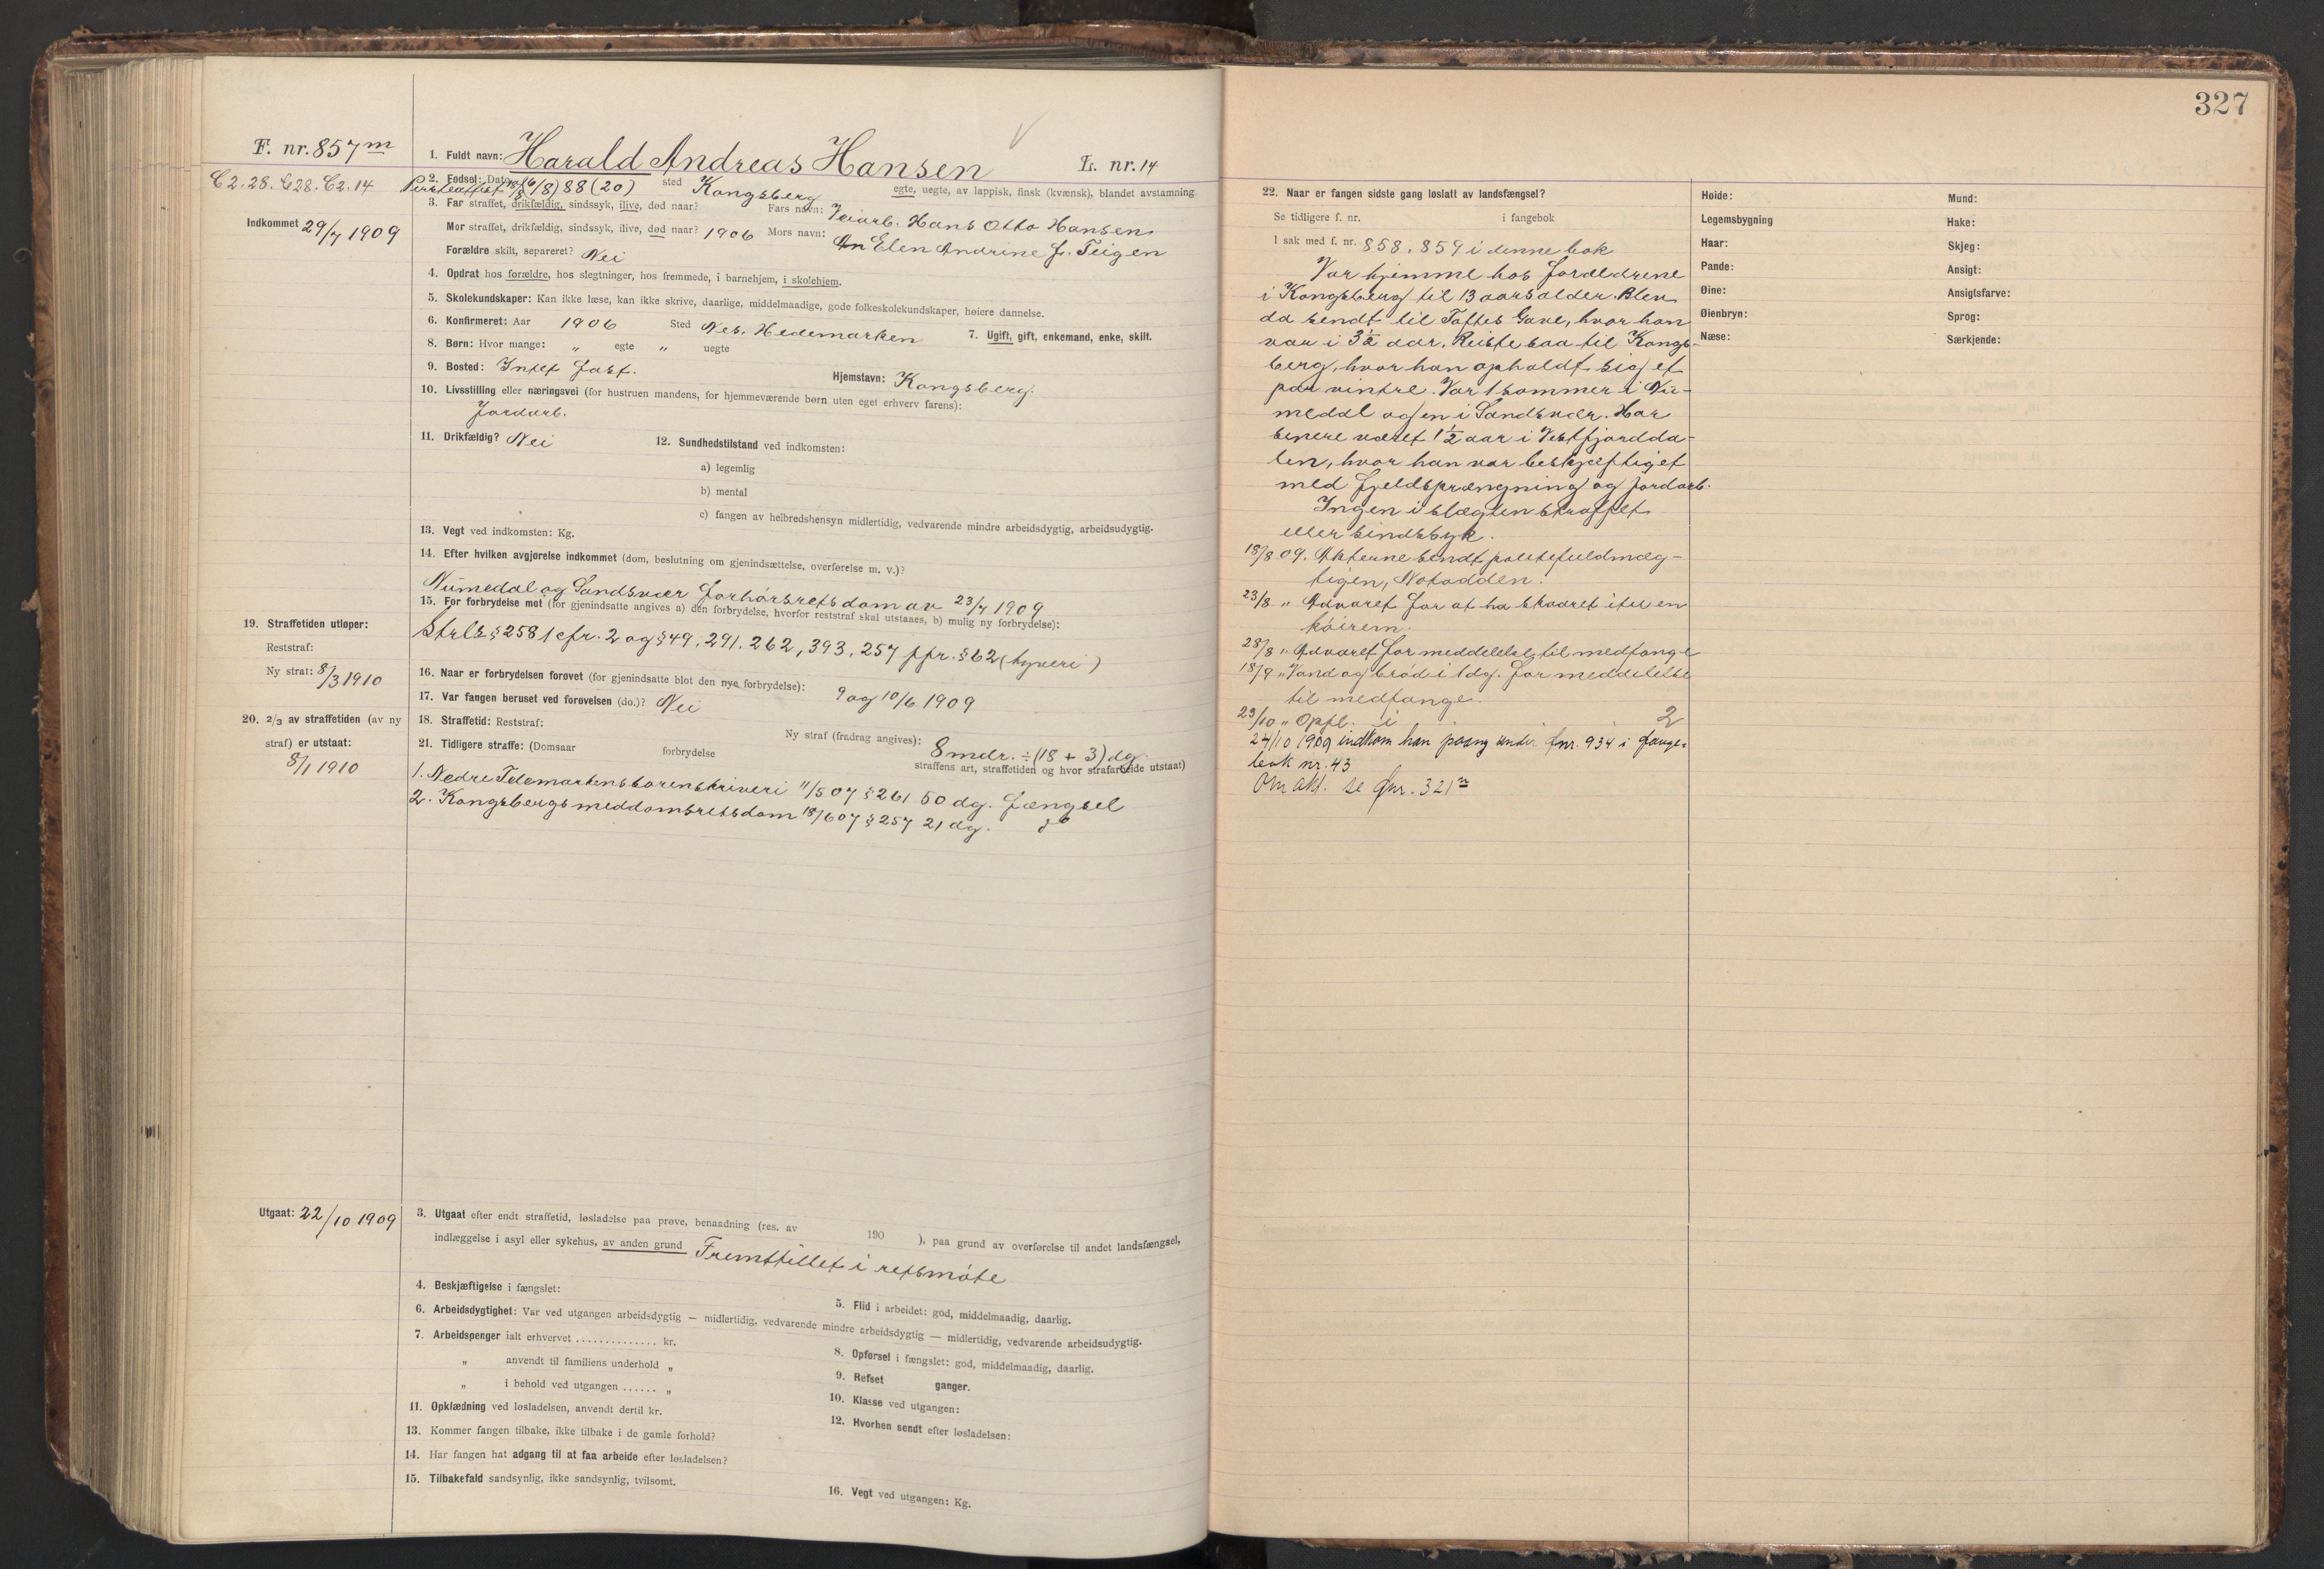 327
F. nr. 857 m
C2. 28. C28. C2. 14
Indkommet 29/7 1909
1. Fuldt navn: Harald Andreas Hansen L. nr. 14
2. Fødsel: Dato /8) 88 (20) sted Kongsberg egte, uegte, av lappisk, finsk (kvænsk), blandet avstamning
3. Far straffet, drikfældig, sindssyk, ilive, død naar? Fars navn: Veiarb. Hans Otto Hansen
Mor straffet, drikfældig, sindssyk, ilive, død naar? 1906 Mors navn: Elen Andrine f. Teigen
Forældre skilt, separeret? Nei
4. Opdrat hos forældre, hos slegtninger, hos fremmede, i barnehjem, i skolehjem.
5. Skolekundskaper: Kan ikke læse, kan ikke skrive, daarlige, middelmaadige, gode folkeskolekundskaper, høiere dannelse.
6. Konfirmeret: Aar 1906 Sted Nes. Hedemarken 7. Ugift, gift, enkemand, enke, skilt.
8. Børn: Hvor mange: „ egte „ uegte
9. Bosted: Intet fast. Hjemstavn: Kongsberg.
10. Livsstilling eller næringsvei (for hustruen mandens, for hjemmeværende børn uten eget erhverv farens):
Jordarb.
11. Drikfældig? Nei 12. Sundhedstilstand ved indkomsten:
a) legemlig
b) mental
c) fangen av helbredshensyn midlertidig, vedvarende mindre arbeidsdygtig, arbeidsudygtig.
13. Vegt ved indkomsten: Kg.
14. Efter hvilken avgjørelse indkommet (dom, beslutning om gjenindsættelse, overførelse m. v.)?
Numedal og Sandsvær forhørsrets dom av 23/7 1909
15. For forbrydelse mot (for gjenindsatte angives a) den forbrydelse, hvorfor reststraf skal utstaaes, b) mulig ny forbrydelse):
Strls § 258 1 cfr. 2 og § 49, 291. 262, 393, 257 jfr. § 62 (tyveri)
16. Naar er forbrydelsen forøvet (for gjenindsatte blot den nye forbrydelse): 9 og 10/6 1909
17. Var fangen beruset ved forøvelsen (do.)? Nei
18. Straffetid: Reststraf:
Ny straf (fradrag angives): 8 mdr. ÷ (18 + 3) dg.
19. Straffetiden utløper:
Reststraf:
Ny straf: 8/3 1910
20. 2/3 av straffetiden (av ny
straf) er utstaat:
8/1 1910
21. Tidligere straffe: (Domsaar forbrydelse straffens art, straffetiden og hvor strafarbeide utstaat)
1. Nedre Telemarkens sorenskriveri 11/5 07 § 261 50 dg. fængsel
2. Kongsbergs meddomsretsdom 18/6 07 § 257 21 dg. do
Utgaat: 22/10 1909
3. Utgaat efter endt straffetid, løsladelse paa prøve, benaadning (res. av 190 ), paa grund av overførelse til andet landsfængsel,
indlæggelse i asyl eller sykehus, av anden grund Fremstillet i retsmøte
4. Beskjæftigelse i fængslet:
5. Flid i arbeidet: god, middelmaadig, daarlig.
6. Arbeidsdygtighet: Var ved utgangen arbeidsdygtig — midlertidig, vedvarende mindre arbeidsdygtig — midlertidig, vedvarende arbeidsudygtig.
7. Arbeidspenger ialt erhvervet .............. kr.
„ anvendt til familiens underhold „
„ i behold ved utgangen ...... „
8. Opførsel i fængslet: god, middelmaadig, daarlig.
9. Refset ganger.
10. Klasse ved utgangen:
11. Opklædning ved løsladelsen, anvendt dertil kr.
12. Hvorhen sendt efter løsladelsen:
13. Kommer fangen tilbake, ikke tilbake i de gamle forhold?
14. Har fangen hat adgang til at faa arbeide efter løsladelsen?
15. Tilbakefald sandsynlig, ikke sandsynlig, tvilsomt.
16. Vegt ved utgangen: Kg.
22. Naar er fangen sidste gang løslatt av landsfængsel?
Se tidligere f. nr. i fangebok
I sak med f. nr. 858, 859 i denne bok
Var hjemme hos forældrene
i Kongsberg til 13 aars alder. Blev
da sendt til Toftes Gave, hvor han
var i 3½ aar. Reiste saa til Kongs-
berg, hvor han opholdt sig et
par vintre. Var 1 sommer i Nu-
medal og en i Sandsvær. Har
senere været 1½ aar i Vestfjordda-
len, hvor han var beskjæftiget
med fjeldsprængning og jordarb.
Ingen i slægten straffet
eller sindssyk.
18/8 09. Akterne sendt politifuldmæg-
tigen, Notodden.
23/8 „ Advaret for at ha skaaret itu en
køirem.
28/8 „ Advaret for meddelelse til medfange
18/9 „ Vand og brød i 1 dg. for meddelelse
til medfange.
23/10 „ Opfl. i 2
24/10 1909 indkom han paany under fnr. 934 i fange-
bok nr. 43
Om akt. se fnr. 321
Høide:
Legemsbygning
Haar:
Pande:
Øine:
Øienbryn:
Næse:
Mund:
Hake:
Skjeg:
Ansigt:
Ansigtsfarve:
Sprog:
Særkjende: